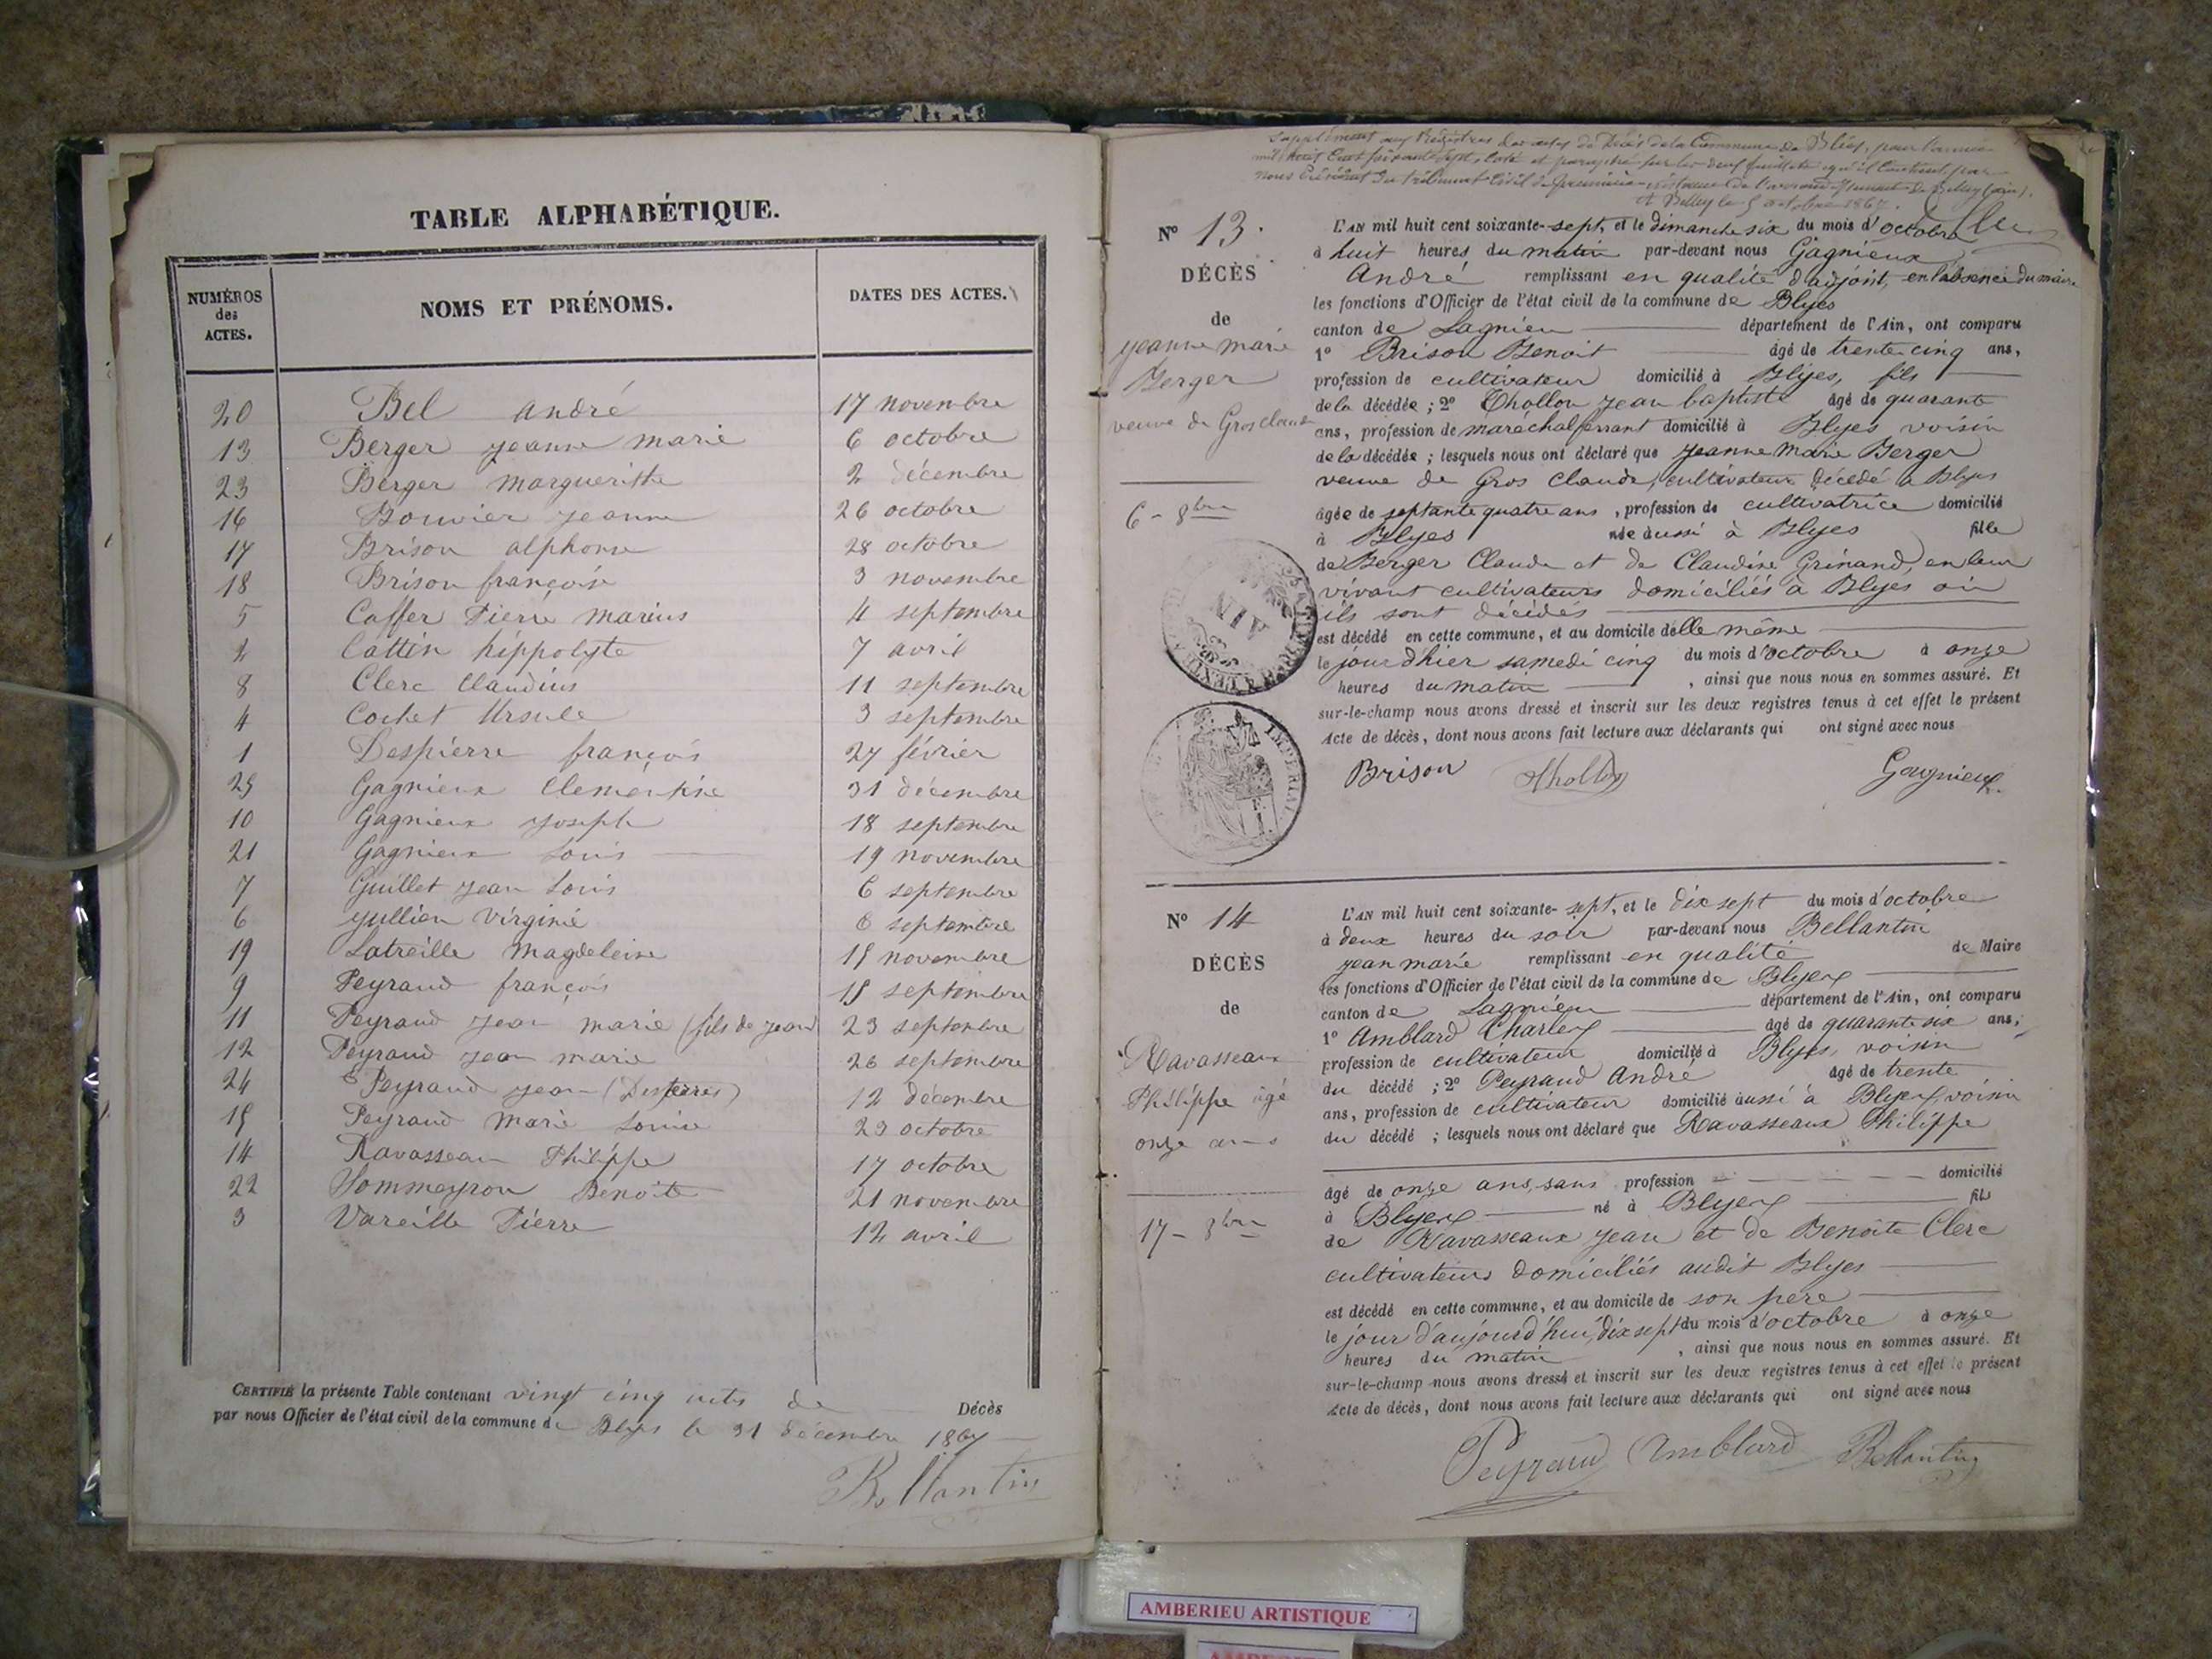 TABLE ALPHABÉTIQUE.
NUMÉROS des ACTES.
NOMS ET PRÉNOMS.
DATES DES ACTES.
20 Bel andré 17 novembre
13 Berger jeanne marie 6 octobre
23 Berger margueritte 2 décembre
16 Bouvier jeanne 26 octobre
17 Brison alphonse 28 octobre
18 Brison françoise 3 novembre
5 Caffer Pierre marius 4 septembre
2 Cattin hippolyte 7 avril
8 Clerc Claudius 11 septembre
4 Cochet Ursule 3 septembre
1 Despierre françois 27 février
25 Gagnieux Clementine 31 décembre
10 Gagnieux joseph 18 septembre
21 Gagnieux Louis 19 novembre
7 Guillet jean Louis 6 septembre
6 jullien virginie 6 septembre
19 Latreille magdeleine 15 novembre
9 Peyraud françois 15 septembre
11 Peyraud jean marie (fils de jean) 23 septembre
12 Peyraud jean marie 26 septembre
24 Peyraud jean 12 décembre
15 Peyraud marie Louise 23 octobre
14 Ravasseau Philippe 17 octobre
22 Sommeyron Benoîte 21 novembre
3 Vareille Pierre 12 avril
CERTIFIÉ la présente Table contenant vingt cinq actes de Décès
par nous Officier de l'état civil de la commune de Blyes le 31 décembre 1867
Bellantin
Supplément aux Régistres des actes de Décès de la Commune de Blies, pour l'année
mil huit cent soixante sept, coté et paraphé sur les deux feuillets qu'il contient, par
nous Président du tribunal Civil de première instance de l'arrondissement de Belley (ain).
A Belley le 5 octobre 1867.
N° 13.
DÉCÈS
de
jeanne marie
Berger
veuve de Gros claude
6 - 8bre
L'AN mil huit cent soixante-sept, et le dimanche six du mois d'octobre
à huit heures du matin par-devant nous Gagnieux
André remplissant en qualité d'adjoint, en l'absence du maire
les fonctions d'Officier de l'état civil de la commune de Blyes
canton de Lagnieu département de l'Ain, ont comparu
1° Brison Benoit âgé de trente cinq ans,
profession de cultivateur domicilié à Blyes, fils
de la décédée ; 2° Chollon jean baptiste âgé de quarante
ans, profession de maréchal ferrant domicilié à Blyes voisin
de la décédée ; lesquels nous ont déclaré que jeanne Marie Berger
veuve de Gros Claude, cultivateur décédé à Blyes
âgée de septante quatre ans, profession de cultivatrice domicilié
à Blyes née aussi à Blyes fille
de Berger Claude et de Claudine Grinand, en leur
vivant cultivateurs domiciliés à Blyes où
ils sont décédés
est décédé en cette commune, et au domicile delle même
le jour d'hier samedi cinq du mois d'octobre à onze
heures du matin , ainsi que nous nous en sommes assuré. Et
sur-le-champ nous avons dressé et inscrit sur les deux registres tenus à cet effet le présent
Acte de décès, dont nous avons fait lecture aux déclarants qui ont signé avec nous
Brison Chollon Gagnieux
AIN
IMPERIAL
N° 14
DÉCÈS
de
Ravasseaux
Philippe agé
onze ans
17 - 8bre
L'AN mil huit cent soixante-sept, et le dix sept du mois d'octobre
à deux heures du soir par-devant nous Bellantin
jean marie remplissant en qualité de Maire
les fonctions d'Officier de l'état civil de la commune de Blyes
canton de Lagnieu département de l'Ain, ont comparu
1° Amblard Charles âgé de quarante six ans,
profession de cultivateur domicilié à Blyes, voisin
du décédé ; 2° Peyraud André âgé de trente
ans, profession de cultivateur domicilié aussi à Blyes, voisin
du décédé ; lesquels nous ont déclaré que Ravasseaux Philippe
âgé de onze ans, sans profession domicilié
à Blyes né à Blyes fils
de Ravasseaux jean et de Benoîte Clerc
cultivateurs domiciliés audit Blyes
est décédé en cette commune, et au domicile de son pere
le jour d'aujourd'hui, dix sept du mois d'octobre à onze
heures du matin , ainsi que nous nous en sommes assuré. Et
sur-le-champ nous avons dressé et inscrit sur les deux registres tenus à cet effet le présent
Acte de décès, dont nous avons fait lecture aux déclarants qui ont signé avec nous
Peyraud Amblard Bellantin
AMBERIEU ARTISTIQUE